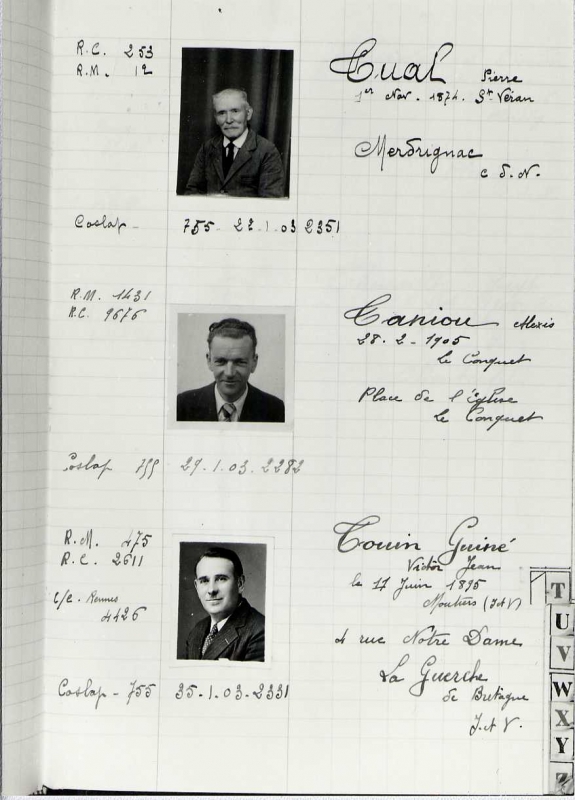 R.C. 253
R.M. 12
Tual Pierre
1er Nov. 1874. St Véran
Merdrignac
C d. N.
Coslap - 755 - 22.1.03 2351
R.M. 1431
R.C. 9676
Taniou Alexis
28-2-1905
Le Conquet
Place de l'Église
Le Conquet
Coslap 755 29.1.03.2282
R.M. 475
R.C. 2611
C/C. Rennes
4426
Touin Guiné
Victor Jean
le 17 Juin 1895
Moutiers (I et V)
4 rue Notre Dame
La Guerche
de Bretagne
I. et V.
Coslap - 755 35-1.03-2331
T
U
V
W
X
Y
Z